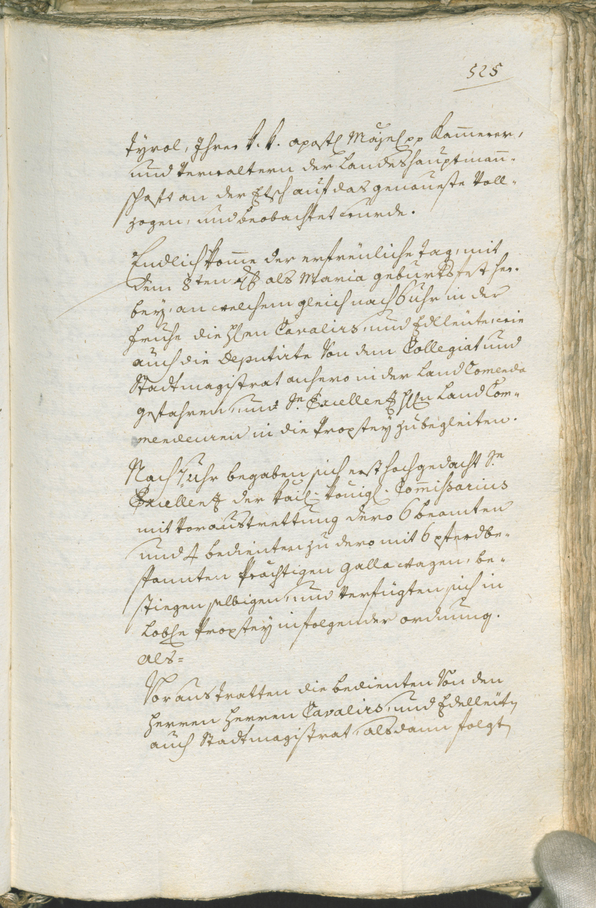 525
Tyrol, Ihrer k. k. apostl Majest pp Kammerer,
und Verwaltern der Landeshauptmann-
schaft an der Etsch auf das genaueste voll-
zogen, und beobachtet wurde.
Endlich komme der erfreuliche Tag, mit
dem 8ten als Maria geburtsfest her-
bey, an welchem gleich nach 6 uhr in der
fruhe die Cavaliers, und Edlleüte, wie
auch die Deputirte von dem Collegiat und
Stadtmagistrat anhero in der Land Comenda
gefahren, und Se Excellenz Hn Land Com-
mendeuren in die Propstey zu begleiten.
Nach 7 uhr begaben sich erst hochgedacht Se
Excellenz der kais. königl. Commissarius
mit voraustrettung dero 6 beamten
und 4 bedienten zu dero mit 6 pferd be-
spannten Prächtigen galla wagen, be-
stiegen selbigen, und verfügten sich in
Lobse Propstey in folgender ordnung.
als=
Voraus tratten die bedienten von den
herren herren Cavaliers, und Edelleüten
auch Stadtmagistrat, alsdann folgt